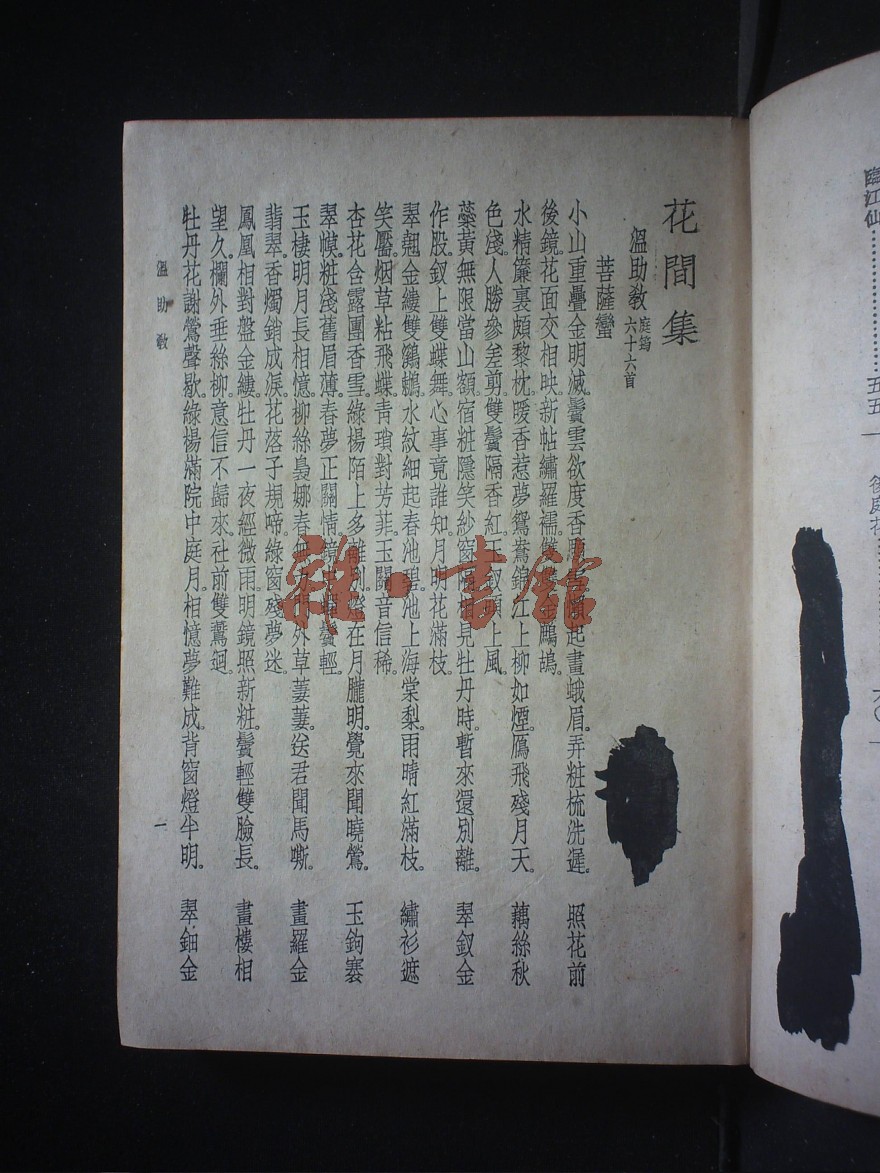 臨江仙……………五五
後庭花
六〇
花間集
溫助教 庭筠
六十六首
菩薩蠻
小山重疊金明滅。鬢雲欲度香 懶起畫蛾眉。弄粧梳洗遲。 照花前
後鏡。花面交相映。新帖繡羅襦。 金鷓鴣。
水精簾裏頗黎枕。暖香惹夢鴛鴦錦。江上柳如煙。鴈飛殘月天。 藕絲秋
色淺。人勝參差剪。雙鬢隔香紅。玉釵頭上風。
蘂黃無限當山額。宿粧隱笑紗窗 相見牡丹時。暫來還別離。 翠釵金
作股。釵上雙蝶舞。心事竟誰知。月明花滿枝。
翠翹金縷雙鸂鶒。水紋細起春池碧。池上海棠梨。雨晴紅滿枝。 繡衫遮
笑靨。烟草粘飛蝶。青瑣對芳菲。玉關音信稀。
杏花含露團香雪。綠楊陌上多離別。燈在月朧明。覺來聞曉鶯。 玉鉤褰
翠幙。粧淺舊眉薄。春夢正關情。鏡 鬢輕。
玉樓明月長相憶。柳絲裊娜春無 門外草萋萋。送君聞馬嘶。 畫羅金
翡翠。香燭銷成淚。花落子規啼。綠窗殘夢迷。
鳳凰相對盤金縷。牡丹一夜經微雨。明鏡照新粧。鬢輕雙臉長。 畫樓相
望久。欄外垂絲柳。意信不歸來。社前雙鷰迴。
牡丹花謝鶯聲歇。綠楊滿院中庭月。相憶夢難成。背窗燈半明。 翠鈿金
溫助教
一
雜·書館